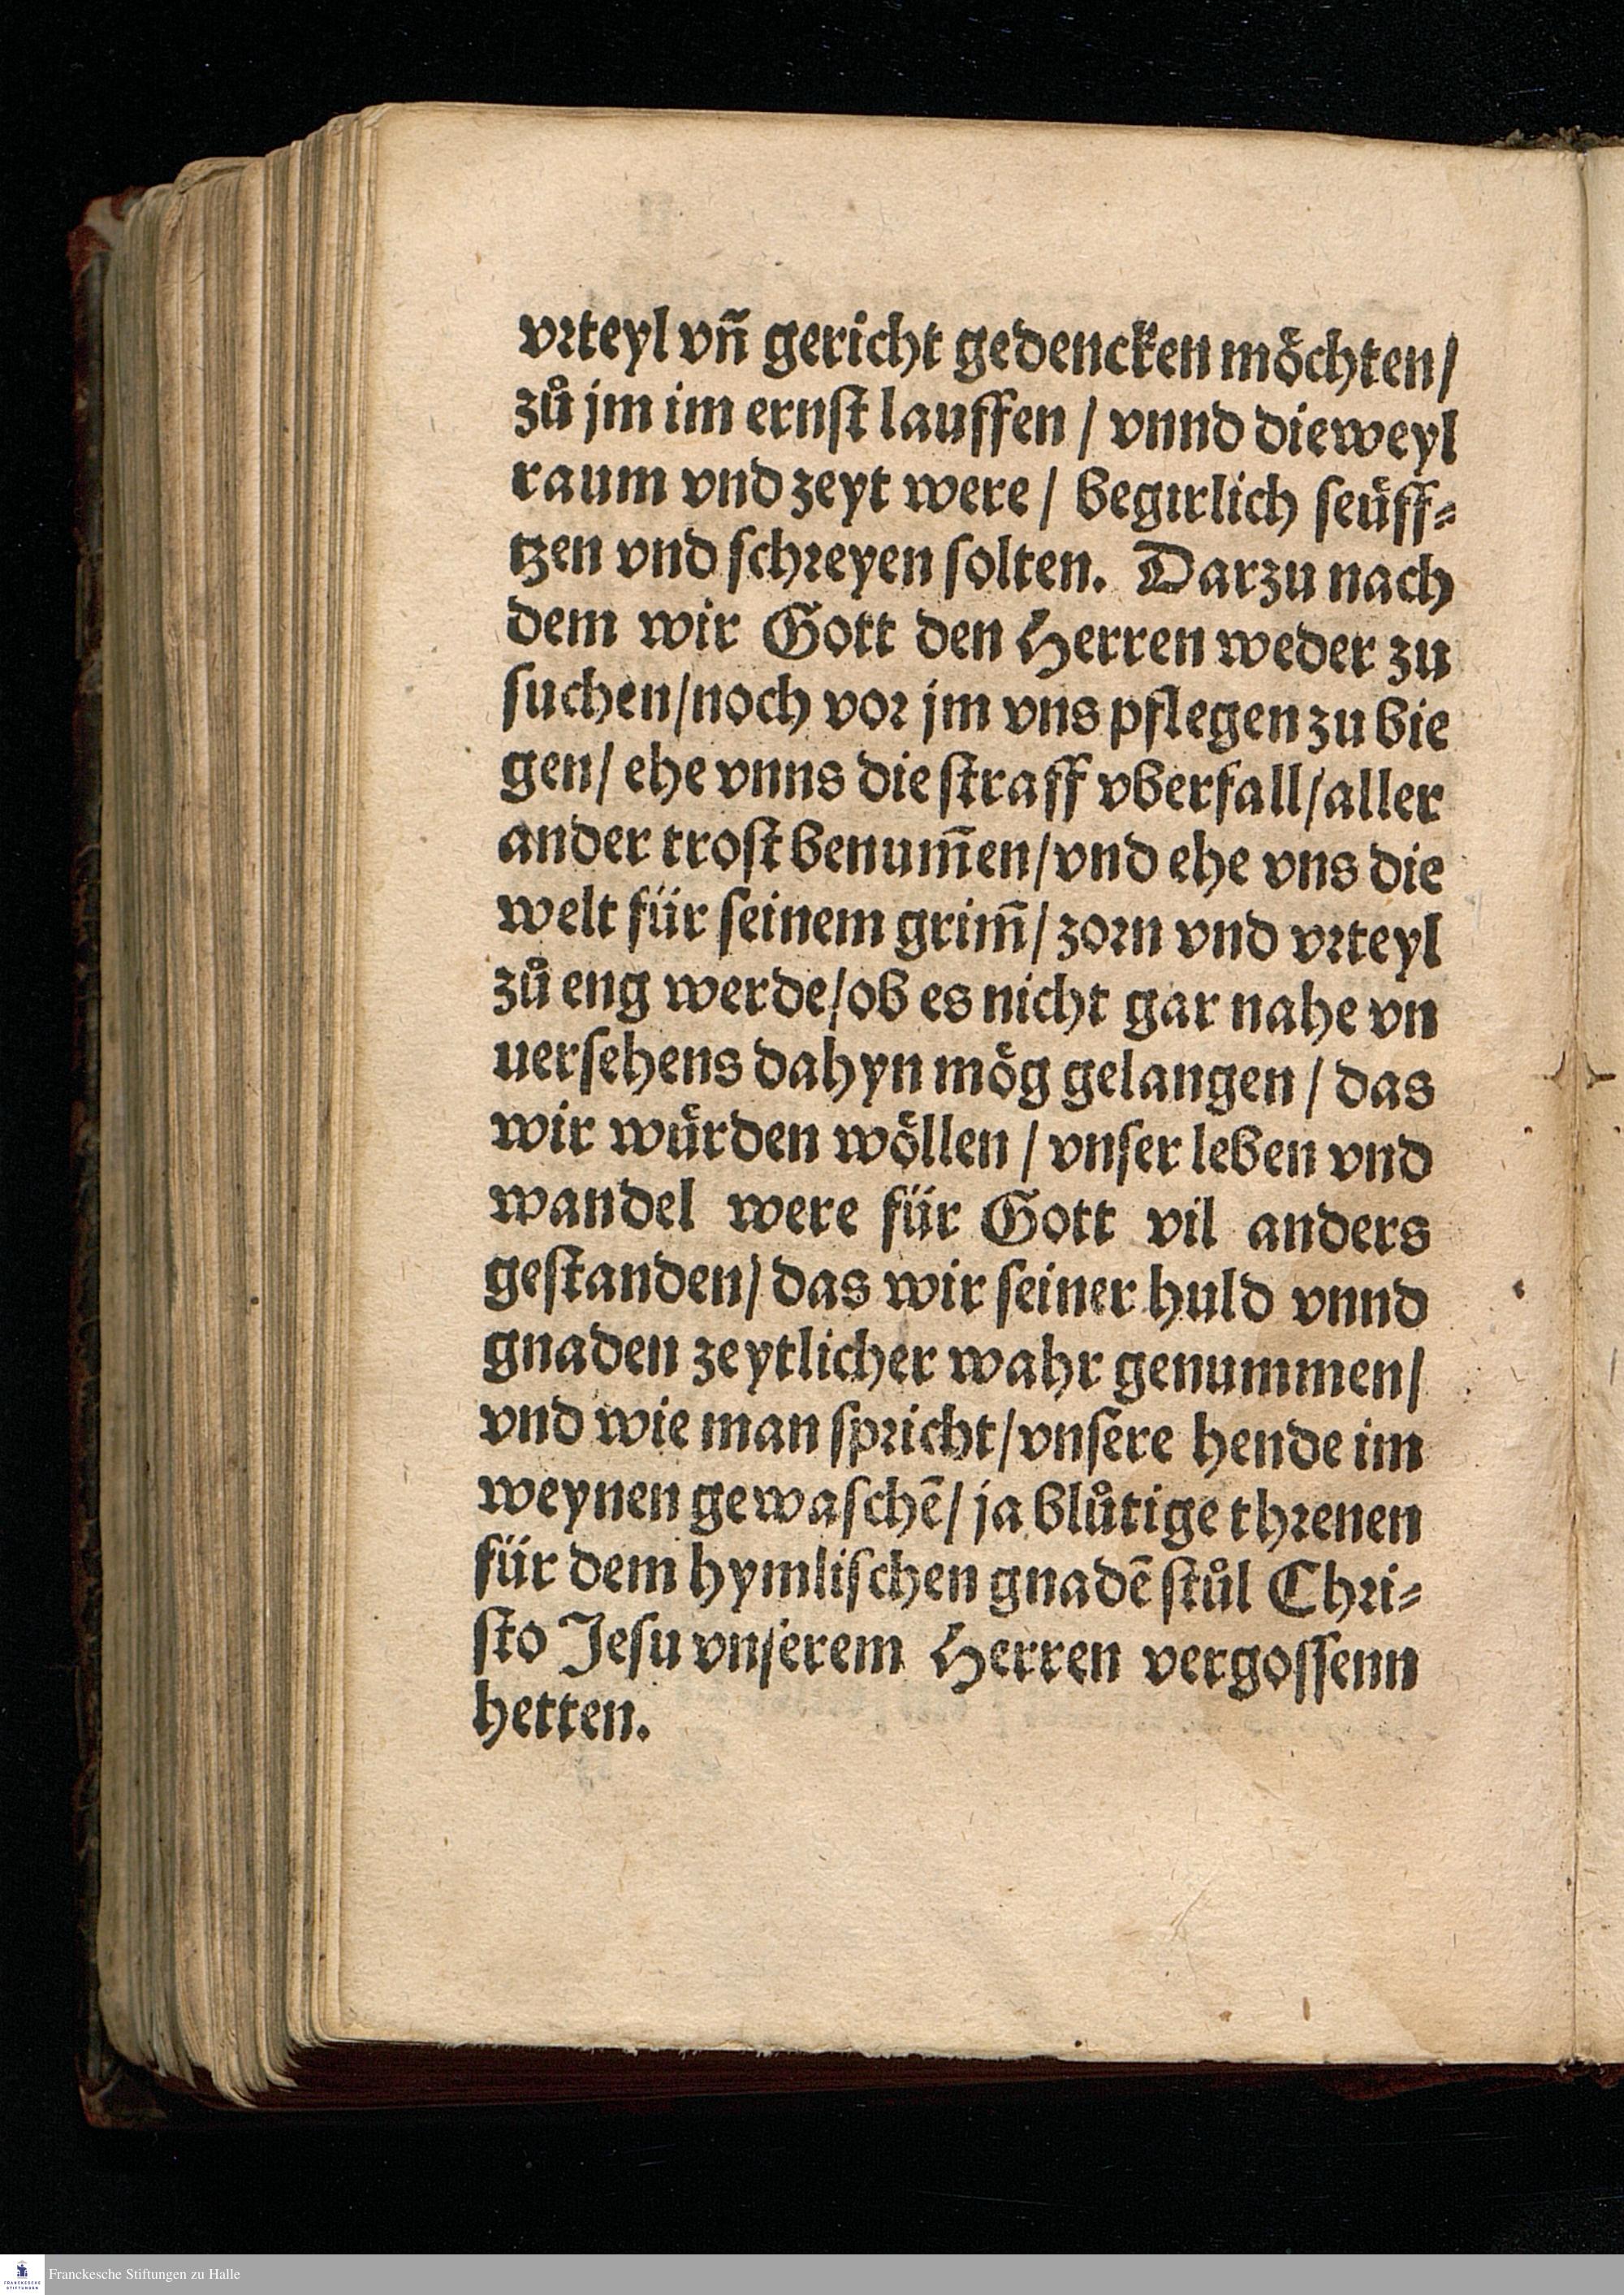 vrteyl vñ gericht gedencken möchten/
zů jm im ernſt lauffen / vnnd dieweyl
raum vnd zeyt were / begirlich ſeüff⸗
tzen vnd ſchreyen ſolten. Darzu nach
dem wir Gott den Herren weder zu
ſuchen/noch vor jm vns pflegen zu bie
gen/ ehe vnns die ſtraff vberfall/aller
ander troſt benum̃en/vnd ehe vns die
welt für ſeinem grim̃/ zorn vnd vrteyl
zů eng werde/ob es nicht gar nahe vn
uerſehens dahyn mög gelangen / das
wir würden wöllen / vnſer leben vnd
wandel were für Gott vil anders
geſtanden/ das wir ſeiner huld vnnd
gnaden zeytlicher wahr genummen/
vnd wie man ſpricht/vnſere hende im
weynen gewaſchẽ/ ja blůtige threnen
für dem hymliſchen gnadẽ ſtůl Chri⸗
ſto Jeſu vnſerem Herren vergoſſenn
hetten.
Franckesche Stiftungen zu Halle